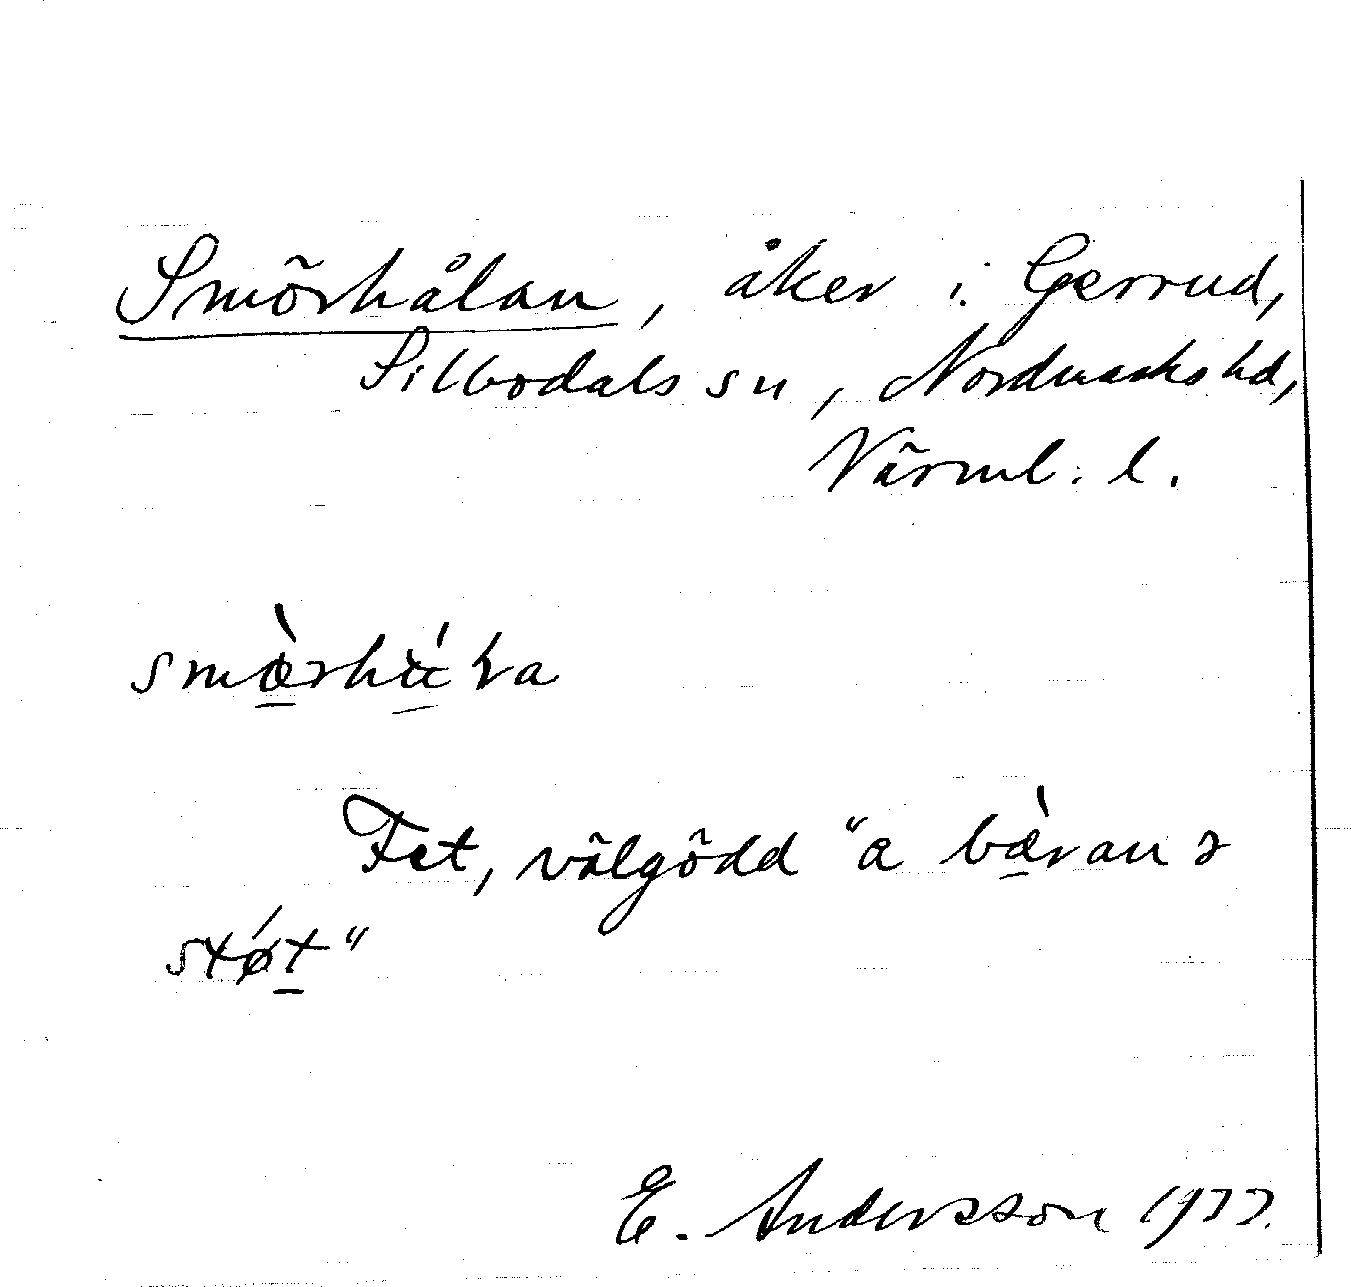 Smörhålan, åker i Gerrud,
Silbodals sn, Nordmarks hd,
Värml. l.
Fet, välgödd "a bæ̀ran ɂ
støt"
E. Andersson 1977.